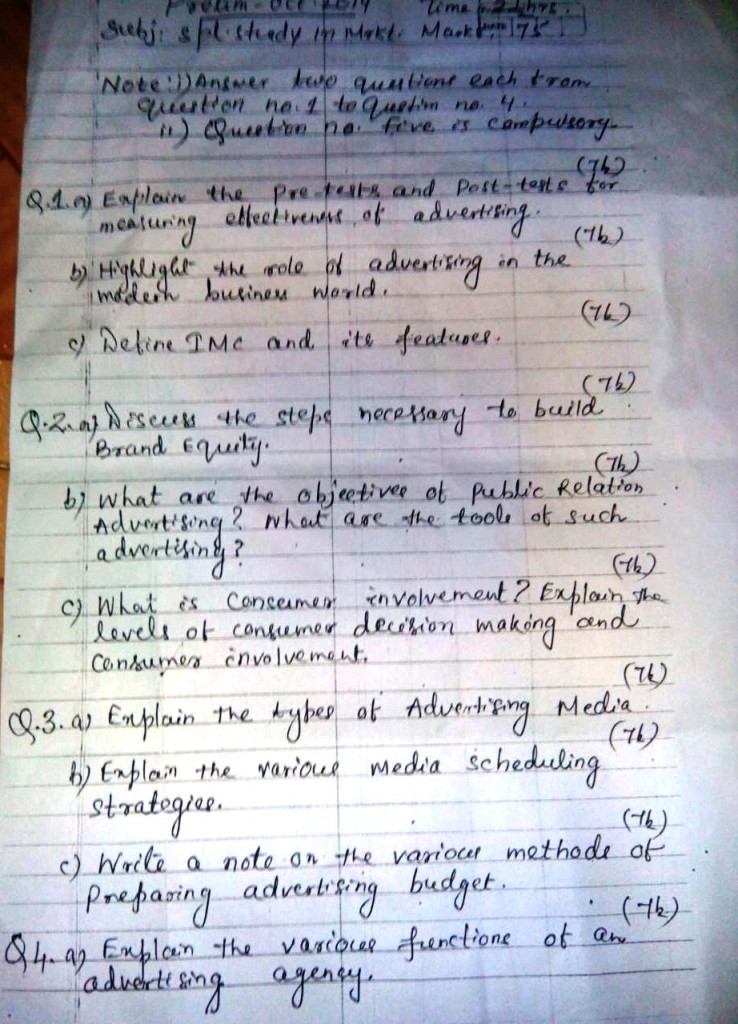 Prelim - Oct. 2014 Time 2½ hrs.
Subj: spl. study in Mrkt. Marks 75
Note: i) Answer two questions each from
question no. 1 to Question no. 4.
ii) Question no. five is compulsory.
(7½)
Q.1. a) Explain the Pre-tests and Post-tests for
measuring effectiveness of advertising.
(7½)
b) Highlight the role of advertising in the
modern business world.
(7½)
c) Define IMC and its features.
(7½)
Q.2. a) Discuss the steps necessary to build
Brand Equity.
(7½)
b) What are the objectives of Public Relation
Advertising? What are the tools of such
advertising?
(7½)
c) What is Consumer involvement? Explain the
levels of consumer decision making and
Consumer involvement.
(7½)
Q.3. a) Explain the types of Advertising Media.
(7½)
b) Explain the various media scheduling
strategies.
(7½)
c) Write a note on the various methods of
Preparing advertising budget.
(7½)
Q4. a) Explain the various functions of an
advertising agency.